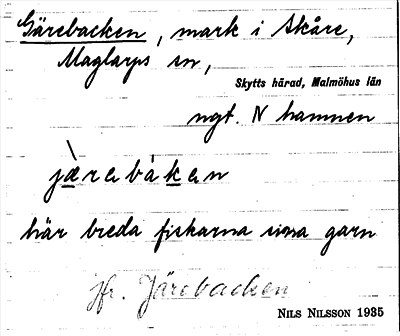 Gärebacken, mark i Skåre,
Maglarps sn,
Skytts härad, Malmöhus län
ngt. N hamnen
jæ̀rabákan
här breda fiskarna sina garn
jfr. Järebacken
NILS NILSSON 1935